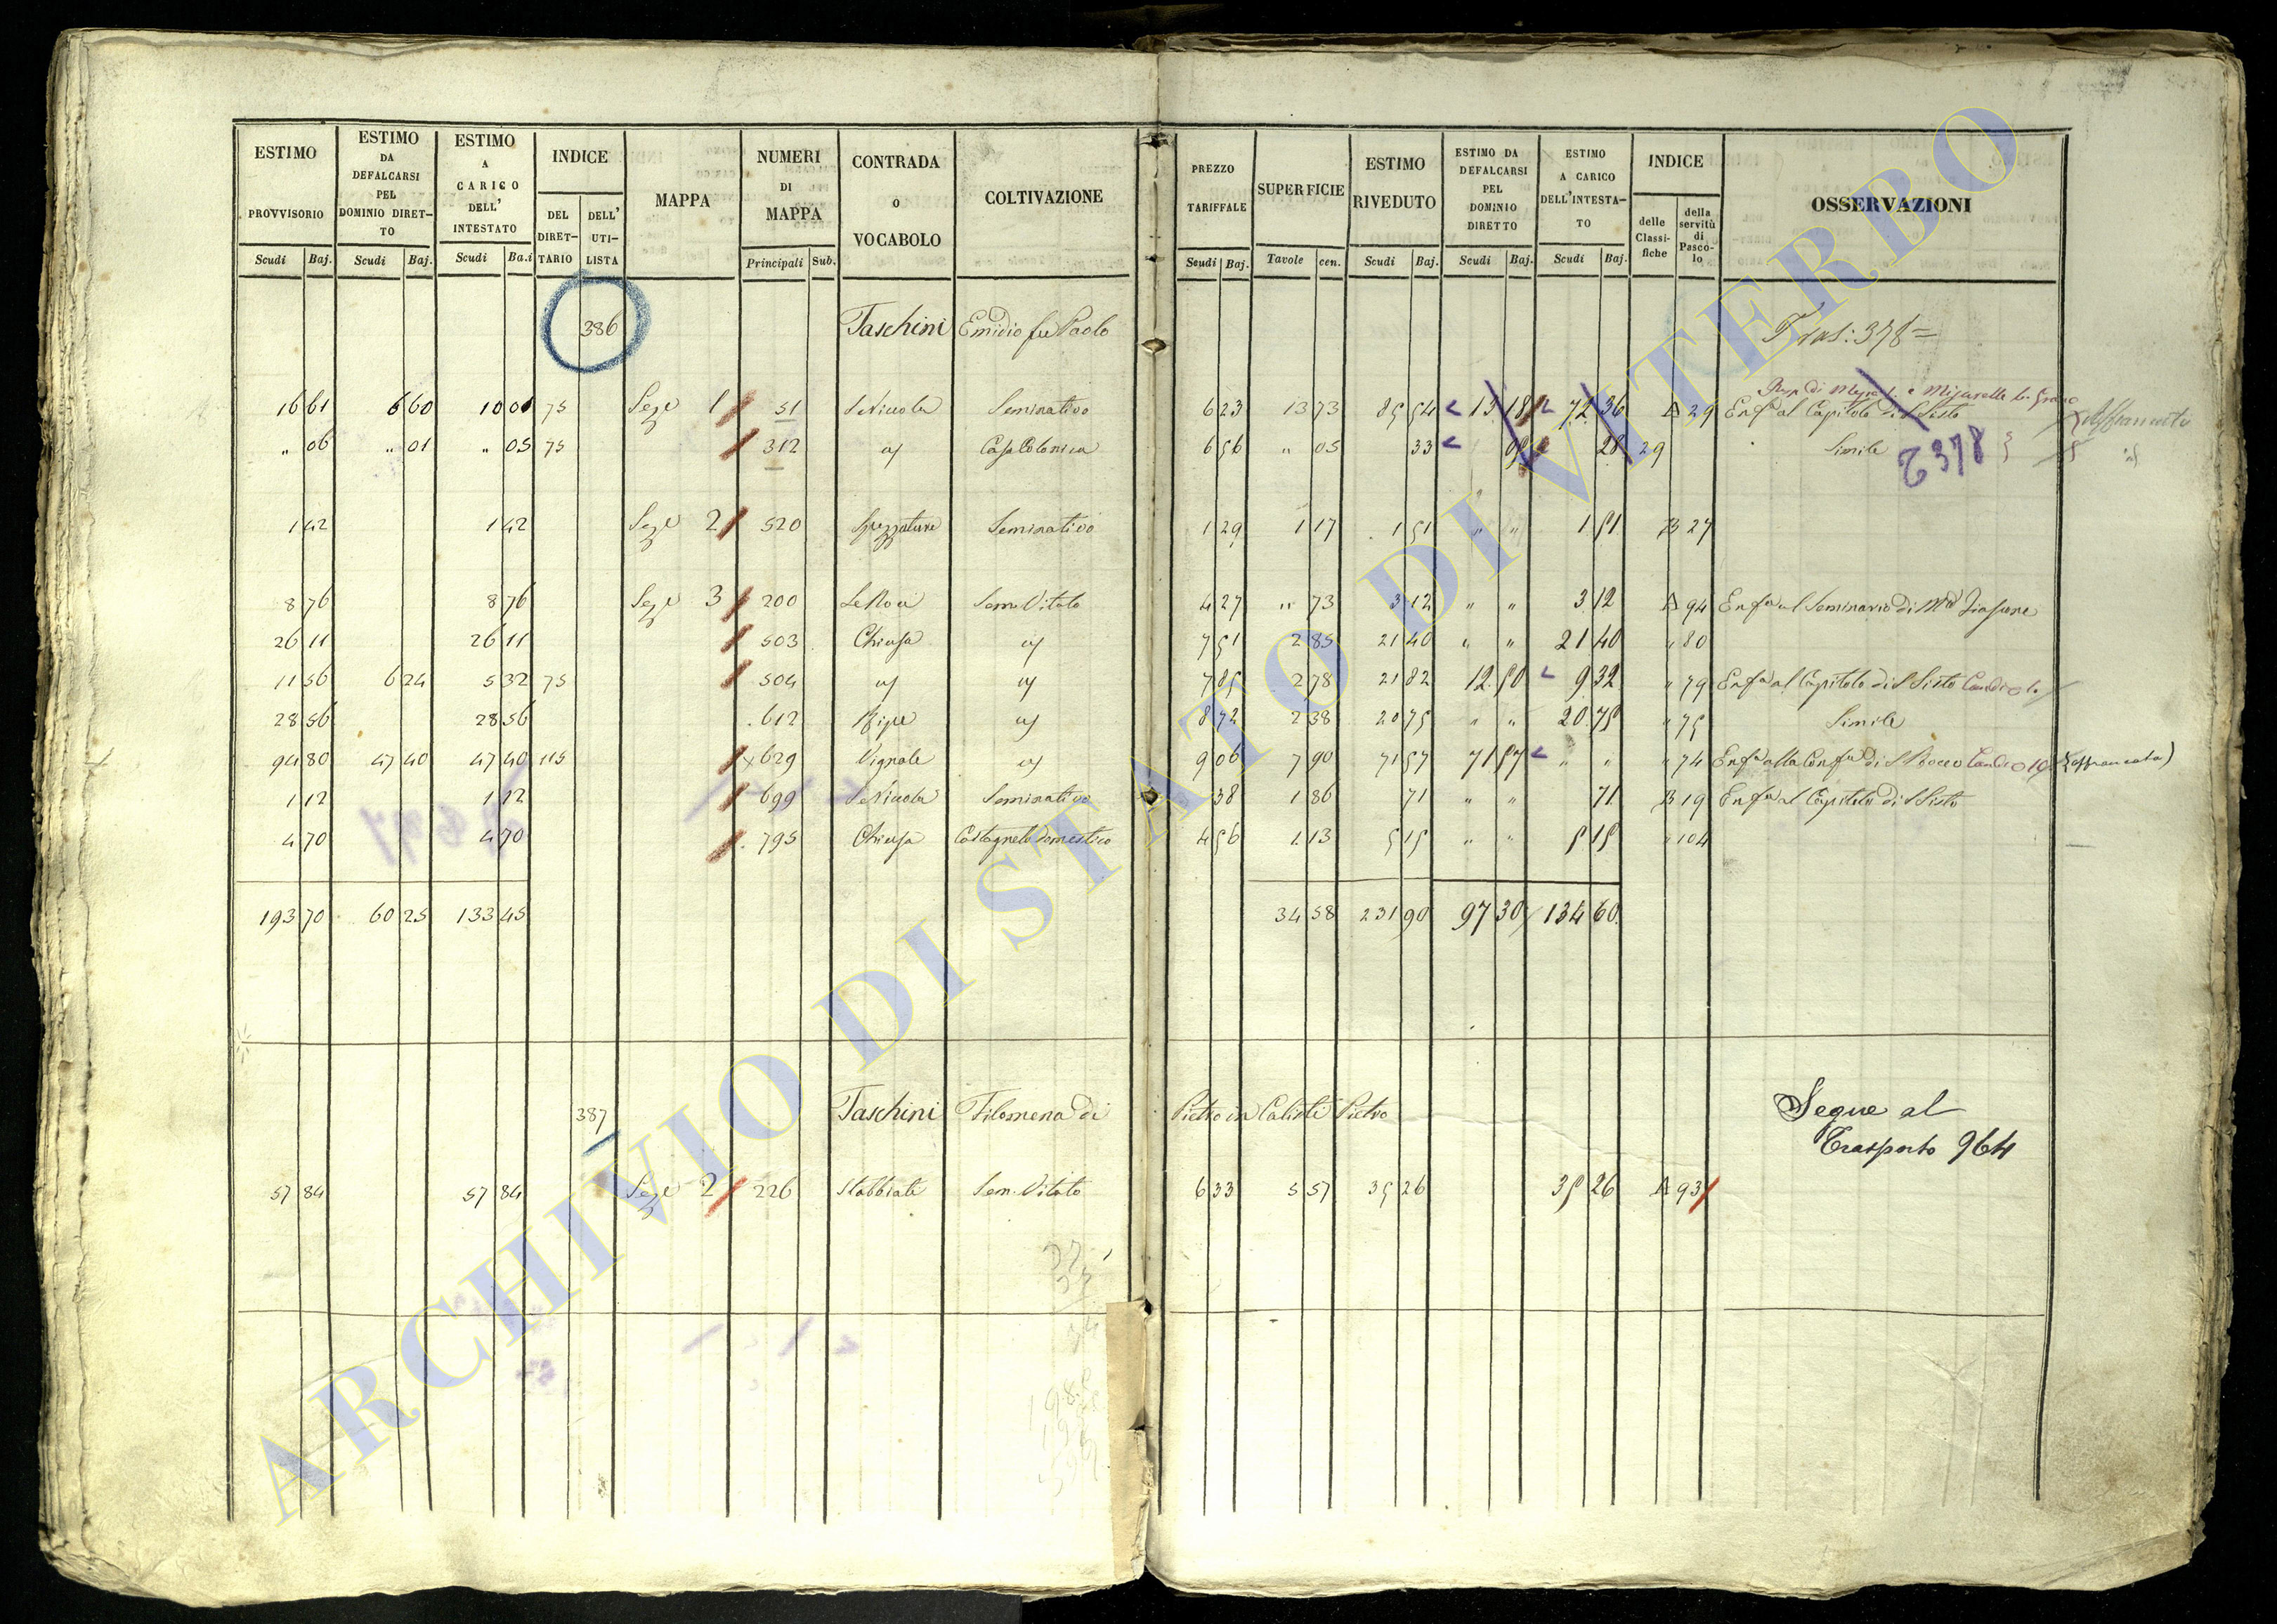 ESTIMO PROVVISORIO Scudi Baj. | ESTIMO DA DEFALCARSI PEL DOMINIO DIRETTO Scudi Baj. | ESTIMO A CARICO DELL' INTESTATO Scudi Ba.i | INDICE DEL DIRETTARIO DELL' UTILISTA | MAPPA | NUMERI DI MAPPA Principali Sub. | CONTRADA O VOCABOLO | COLTIVAZIONE | PREZZO TARIFFALE Scudi Baj. | SUPERFICIE Tavole cen. | ESTIMO RIVEDUTO Scudi Baj. | ESTIMO DA DEFALCARSI PEL DOMINIO DIRETTO Scudi Baj. | ESTIMO A CARICO DELL'INTESTATO Scudi Baj. | INDICE delle Classifiche della servitù di Pascolo | OSSERVAZIONI
386 Taschini Emidio fu Paolo Tras: 378=
16 61 6 60 10 01 75 Sez.e 1 51 S Niccola Seminativo 6 23 13 73 85 54 13 18 72 36 A 29 Enf.a al Capitolo di S Sisto Affrancato
" 06 " 01 " 05 75 312 id Casa Colonica 6 56 " 05 33 05 28 29 Simile T 378 id
1 42 1 42 Sez.e 2 520 Spezzature Seminativo 1 29 1 17 1 51 " " 1 51 B 27
8 76 8 76 Sez.e 3 200 Sem. Vitato 4 27 " 73 3 12 " " 3 12 A 94 Enf.a al Seminario di M.te Fiascone
26 11 26 11 503 Chiusa id 7 51 2 85 21 40 " " 21 40 " 80
11 56 6 24 5 32 75 504 id id 7 85 2 78 21 82 12 50 9 32 " 79 Enf.a al Capitolo di S Sisto
28 56 28 56 612 Ripe id 8 72 2 38 20 75 " " 20 75 " 75 Simile
94 80 47 40 47 40 115 629 Vignale id 9 06 7 90 71 57 71 57 " " " 74 Enf.a alla Conf.a di S Rocco (affrancata)
1 12 1 12 699 S Niccola Seminativo 38 1 86 71 " " 71 B 19 Enf.a al Capitolo di S Sisto
4 70 4 70 795 Chiusa Castagneto domestico 4 56 1 13 5 15 " " 5 15 " 104
193 70 60 25 133 45 34 58 231 90 97 30 134 60
387 Taschini Filomena di Pietro in Calisti Pietro Segue al
Trasporto 964
57 84 57 84 Sez.e 2 226 Stabbiate Sem. Vitato 6 33 5 57 35 26 35 26 A 93
ARCHIVIO DI STATO DI VITERBO